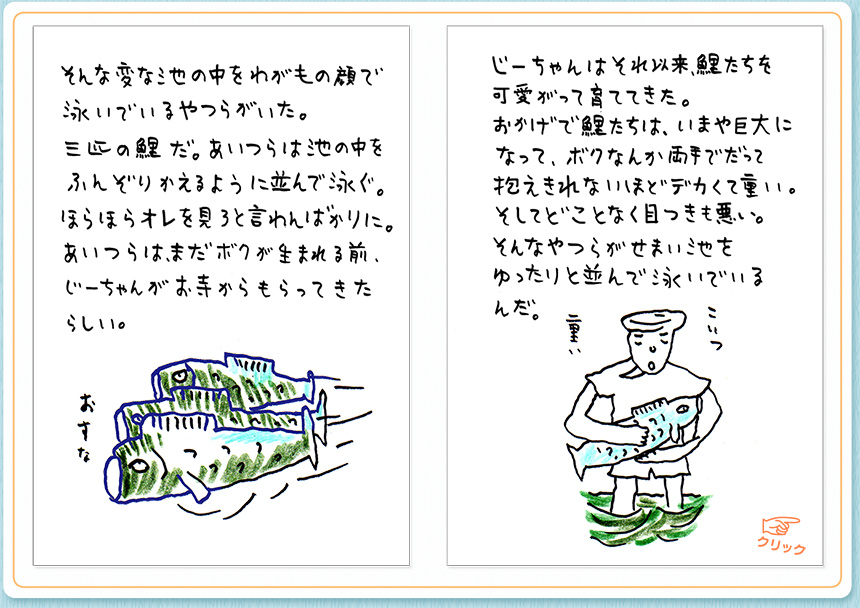 そんな変な池の中をわがもの顔で
泳いでいるやつらがいた。
三匹の鯉だ。あいつらは池の中を
ふんぞりかえるように並んで泳ぐ。
ほらほらオレを見ろと言わんばかりに。
あいつらは、まだボクが生まれる前、
じーちゃんがお寺からもらってきた
らしい。
おすな
じーちゃんはそれ以来、鯉たちを
可愛がって育ててきた。
おかげで鯉たちは、いまや巨大に
なって、ボクなんか両手でだって
抱えきれないほどデカくて重い。
そしてどことなく目つきも悪い。
そんなやつらがせまい池を
ゆったりと並んで泳いでいる
んだ。
こいつ
重い
クリック